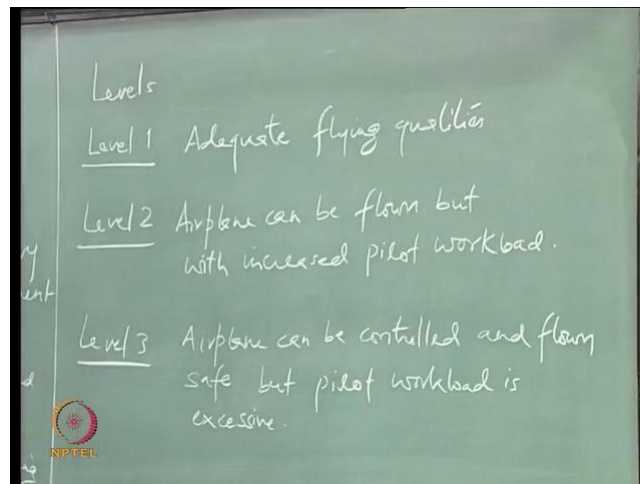 Levels
Level 1 Adequate flying qualities
Level 2 Airplane can be flown but
with increased pilot workload.
Level 3 Airplane can be controlled and flown
safe but pilot workload is
excessive.
NPTEL